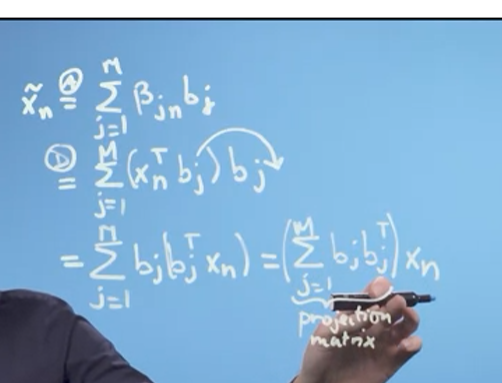 x̃ₙ Ⓐ= Σ_{j=1}^{M} β_{jn} b_j
Ⓓ= Σ_{j=1}^{M} (xₙᵀ b_j) b_j
= Σ_{j=1}^{M} b_j (b_jᵀ xₙ) = (Σ_{j=1}^{M} b_j b_jᵀ) xₙ
projection
matrix